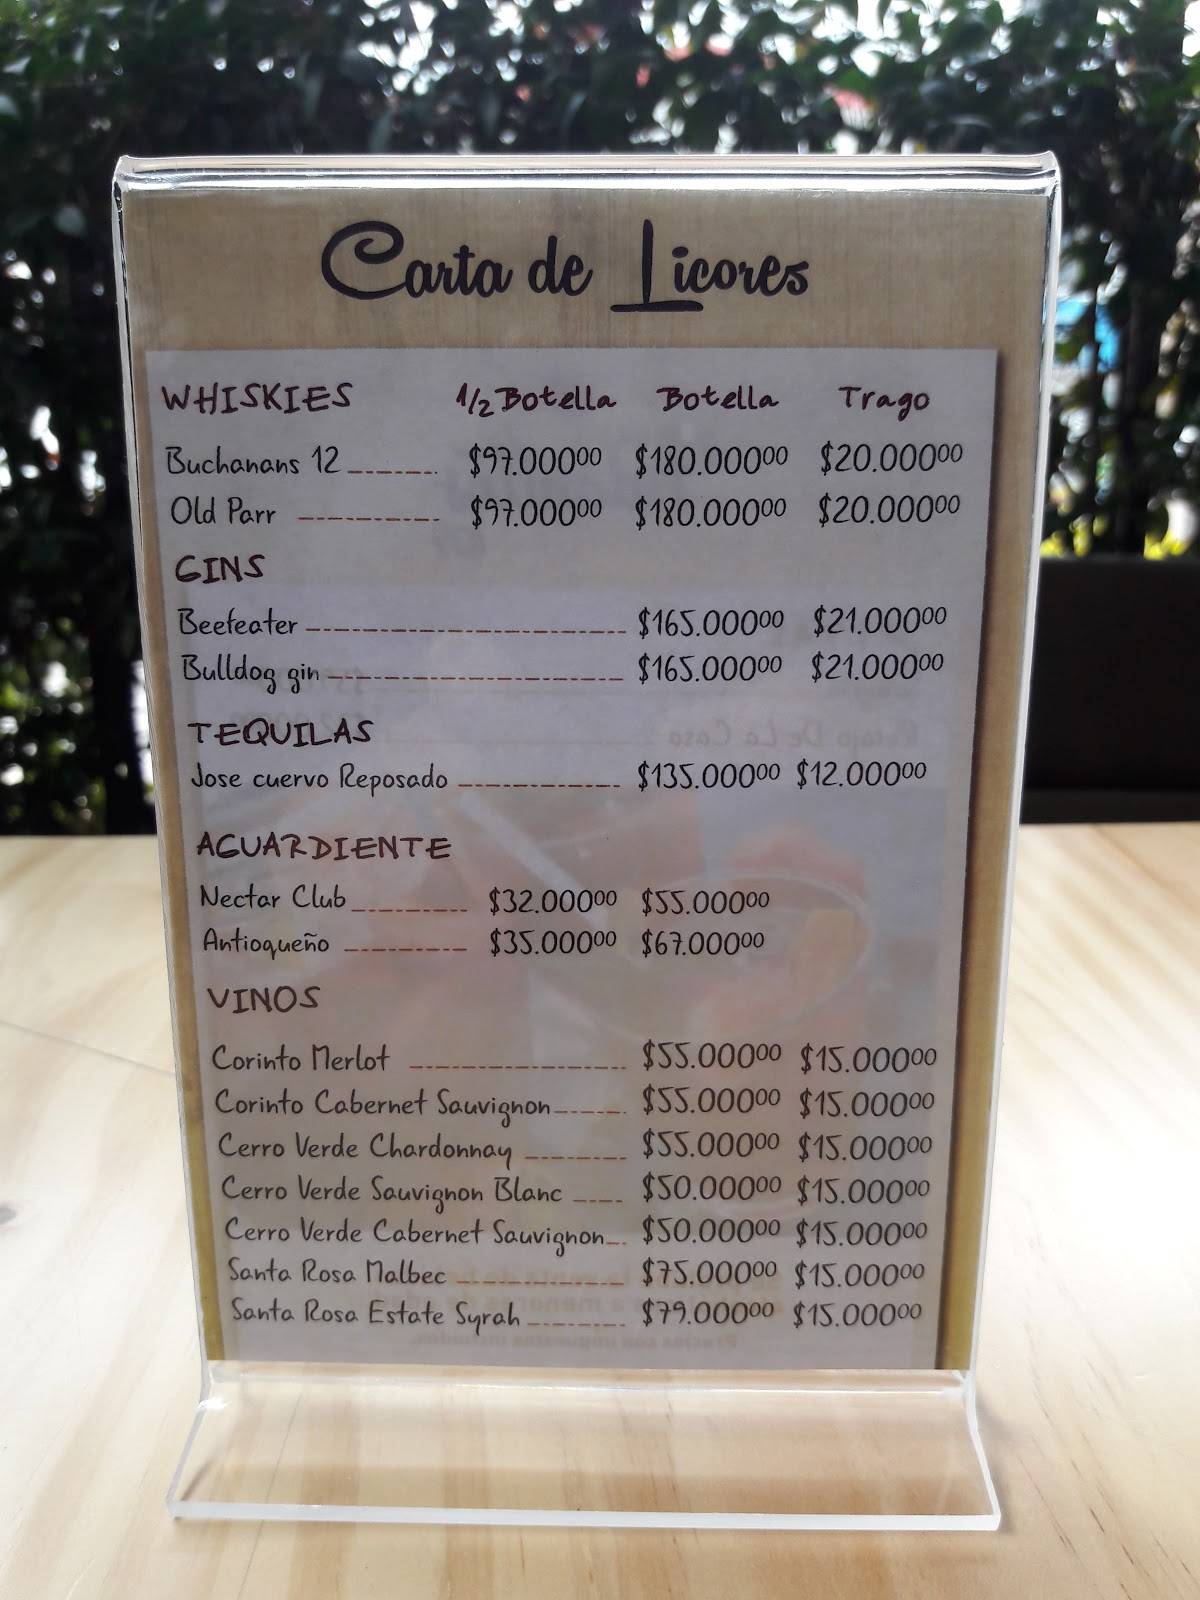 Carta de Licores
WHISKIES 1/2 Botella Botella Trago
Buchanans 12 $97.000⁰⁰ $180.000⁰⁰ $20.000⁰⁰
Old Parr $97.000⁰⁰ $180.000⁰⁰ $20.000⁰⁰
GINS
Beefeater $165.000⁰⁰ $21.000⁰⁰
Bulldog gin $165.000⁰⁰ $21.000⁰⁰
TEQUILAS
Jose cuervo Reposado $135.000⁰⁰ $12.000⁰⁰
AGUARDIENTE
Nectar Club $32.000⁰⁰ $55.000⁰⁰
Antioqueño $35.000⁰⁰ $67.000⁰⁰
VINOS
Corinto Merlot $55.000⁰⁰ $15.000⁰⁰
Corinto Cabernet Sauvignon $55.000⁰⁰ $15.000⁰⁰
Cerro Verde Chardonnay $55.000⁰⁰ $15.000⁰⁰
Cerro Verde Sauvignon Blanc $50.000⁰⁰ $15.000⁰⁰
Cerro Verde Cabernet Sauvignon $50.000⁰⁰ $15.000⁰⁰
Santa Rosa Malbec $75.000⁰⁰ $15.000⁰⁰
Santa Rosa Estate Syrah $79.000⁰⁰ $15.000⁰⁰